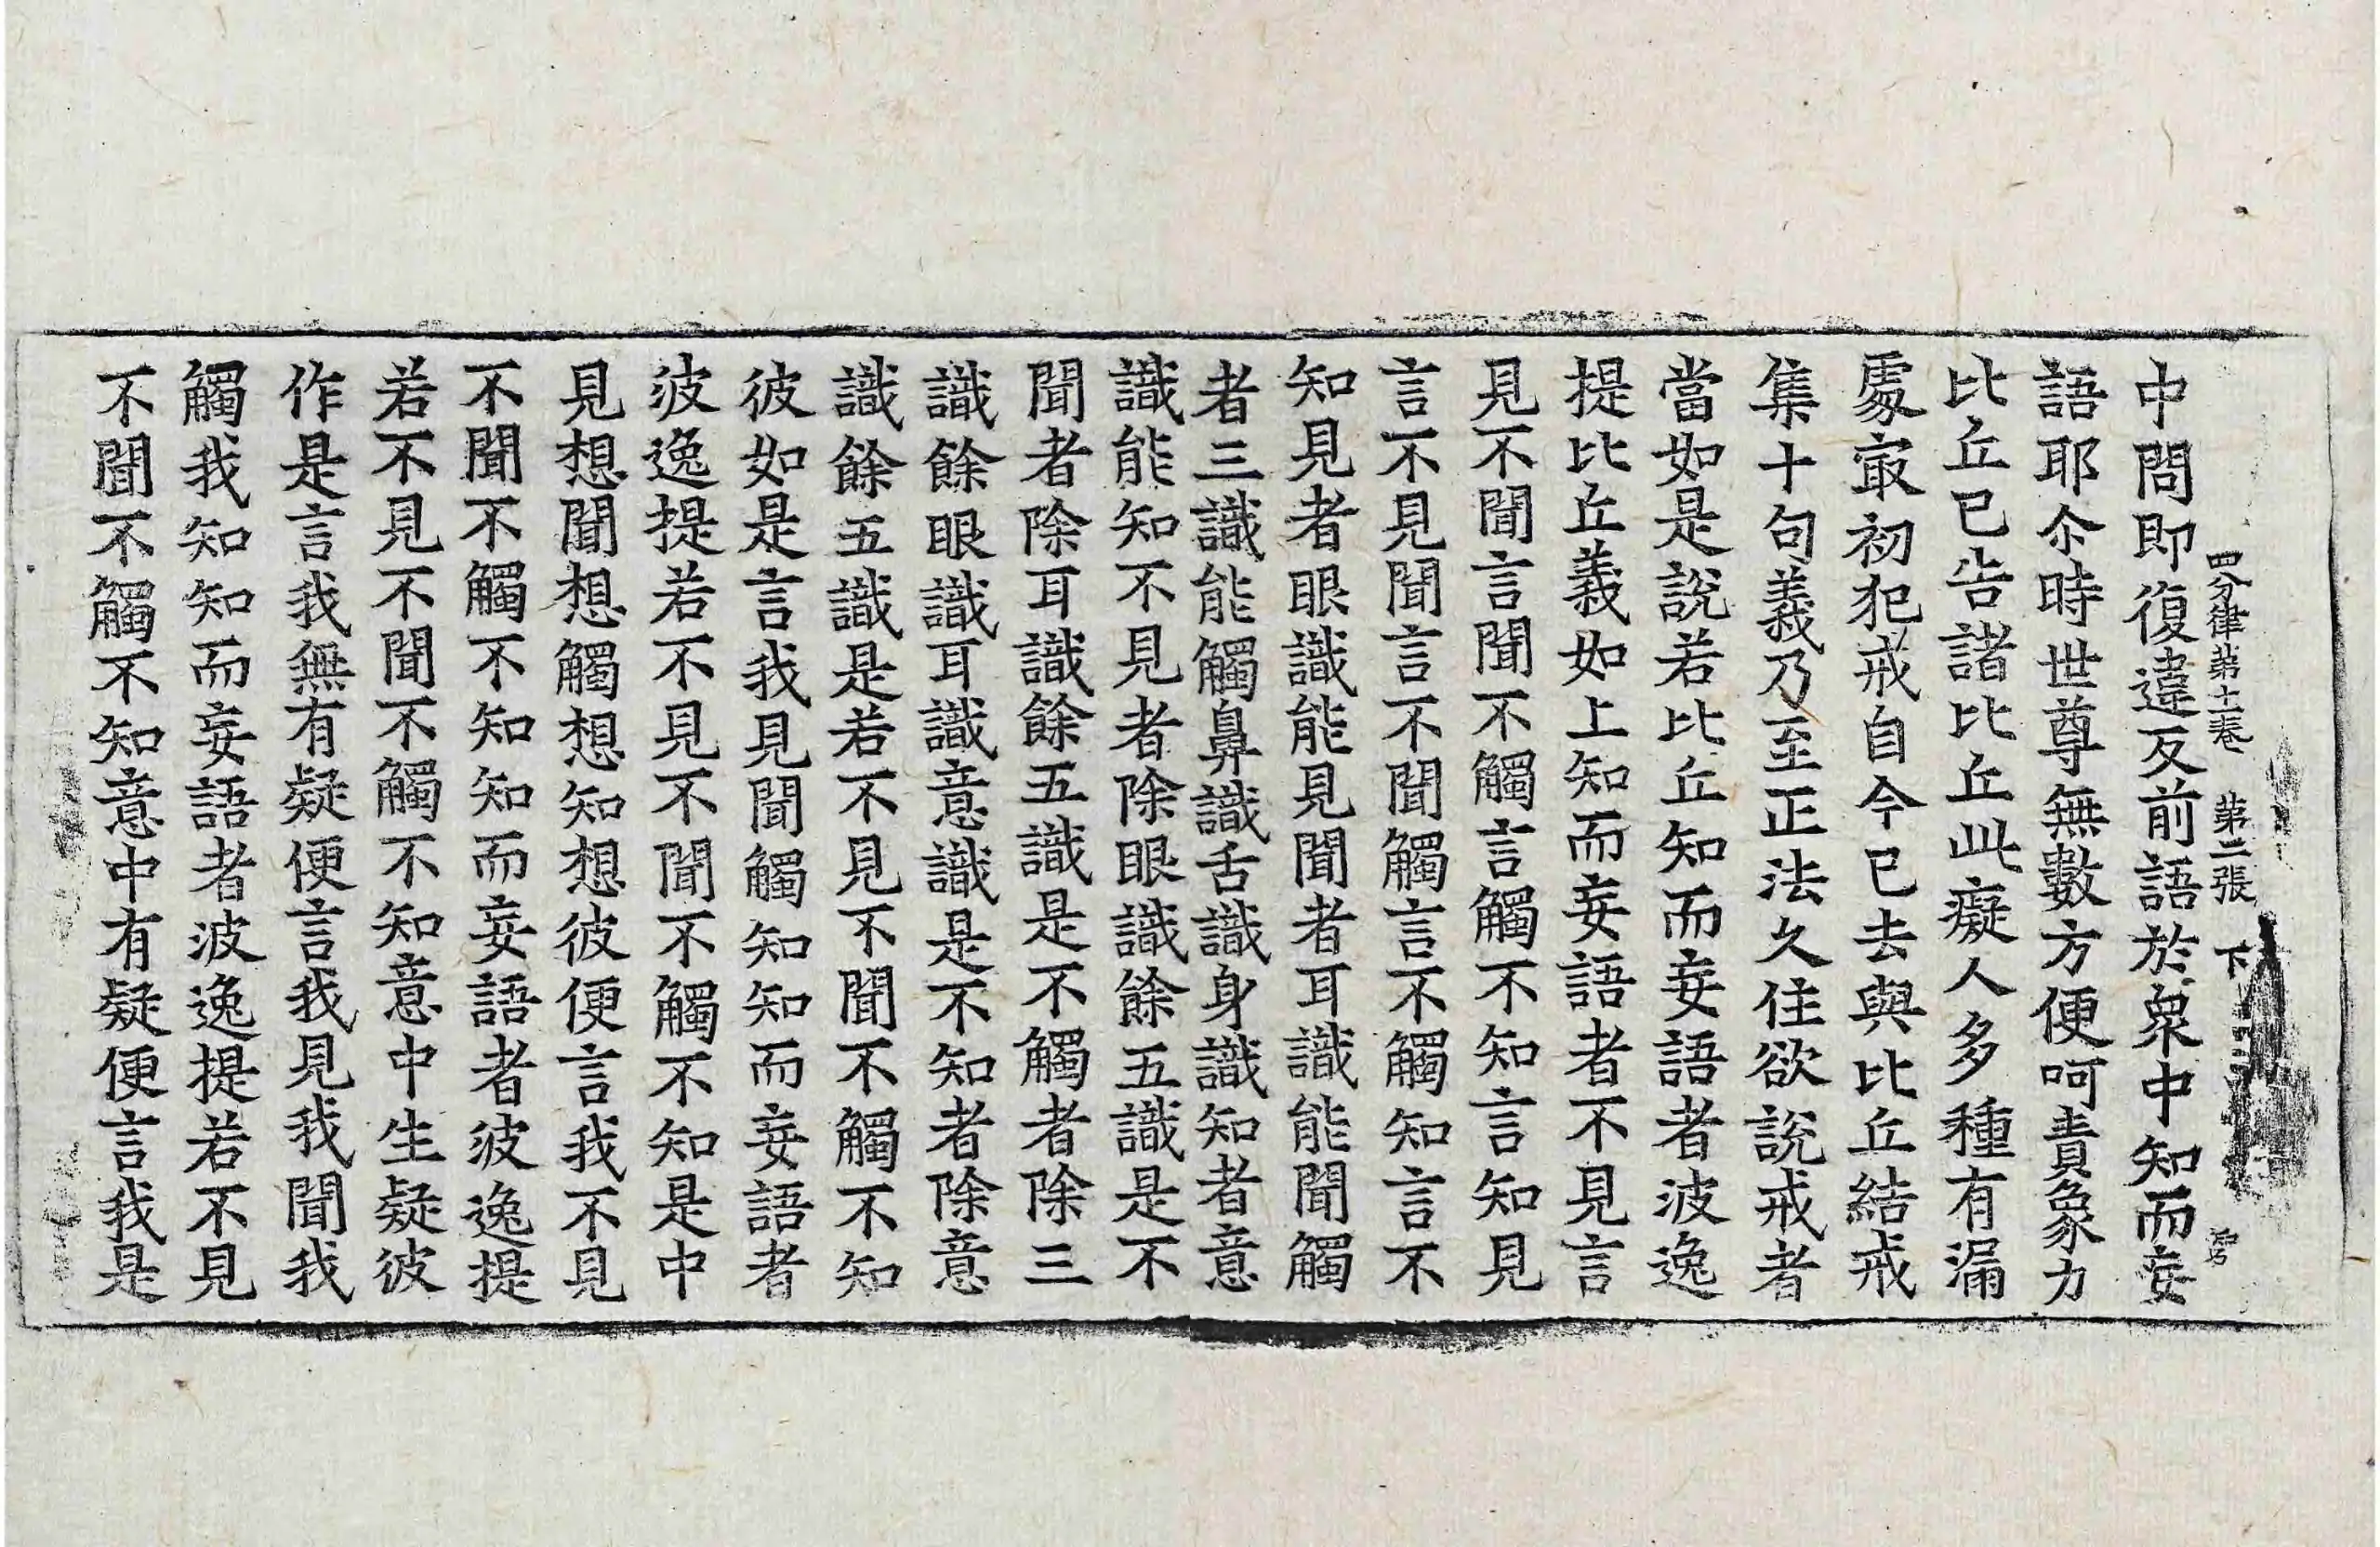 四分律第十一卷 第二張 下
中問即復違反前語於衆中知而妄
語耶尒時世尊無數方便呵責象力
比丘已告諸比丘此癡人多種有漏
處㝡初犯戒自今已去與比丘結戒
集十句義乃至正法久住欲説戒者
當如是説若比丘知而妄語者波逸
提比丘義如上知而妄語者不見言
見不聞言聞不觸言觸不知言知見
言不見聞言不聞觸言不觸知言不
知見者眼識能見聞者耳識能聞觸
者三識能觸鼻識舌識身識知者意
識能知不見者除眼識餘五識是不
聞者除耳識餘五識是不觸者除三
識餘眼識耳識意識是不知者除意
識餘五識是若不見不聞不觸不知
彼如是言我見聞觸知知而妄語者
波逸提若不見不聞不觸不知是中
見想聞想觸想知想彼便言我不見
不聞不觸不知知而妄語者波逸提
若不見不聞不觸不知意中生疑彼
作是言我無有疑便言我見我聞我
觸我知知而妄語者波逸提若不見
不聞不觸不知意中有疑便言我是